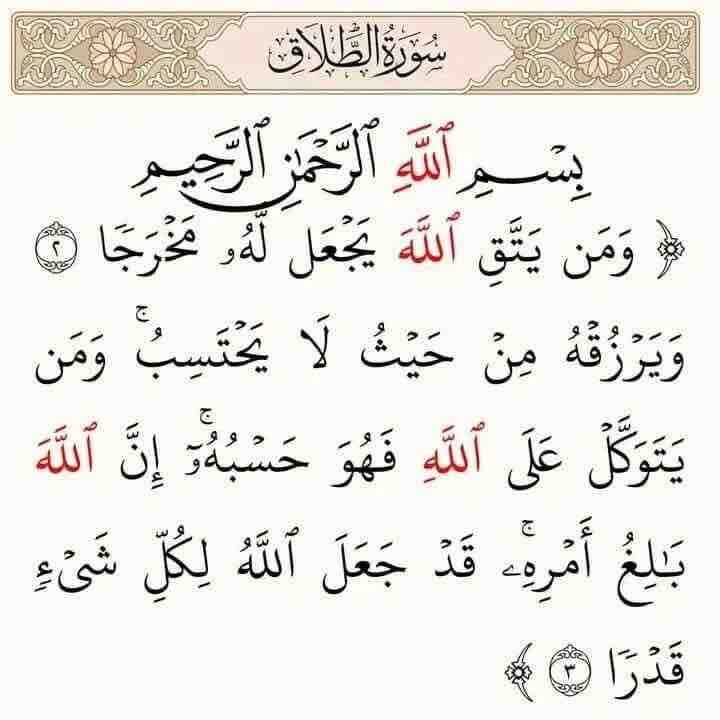 سُورَةُ الطَّلَاقِ
بِسْمِ ٱللَّهِ ٱلرَّحْمَٰنِ ٱلرَّحِيمِ
﴿ وَمَن يَتَّقِ ٱللَّهَ يَجْعَل لَّهُۥ مَخْرَجًا ٢
وَيَرْزُقْهُ مِنْ حَيْثُ لَا يَحْتَسِبُ ۚ وَمَن
يَتَوَكَّلْ عَلَى ٱللَّهِ فَهُوَ حَسْبُهُۥٓ ۚ إِنَّ ٱللَّهَ
بَٰلِغُ أَمْرِهِۦ ۚ قَدْ جَعَلَ ٱللَّهُ لِكُلِّ شَىْءٍ
قَدْرًا ٣ ﴾